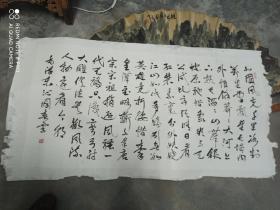 北国风光千里冰封
万里雪飘望长城内
外惟余莽莽大河上
下顿失滔滔山舞银
蛇原驰蜡象欲与天
公试比高须晴日看
红装素裹分外妖
江山如此多娇引无数
英雄竞折腰惜秦
皇汉武略输文采唐
宗宋祖稍逊风骚一
代天骄
大雕俱往矣数风流
人物还看今朝
毛泽东沁园春雪